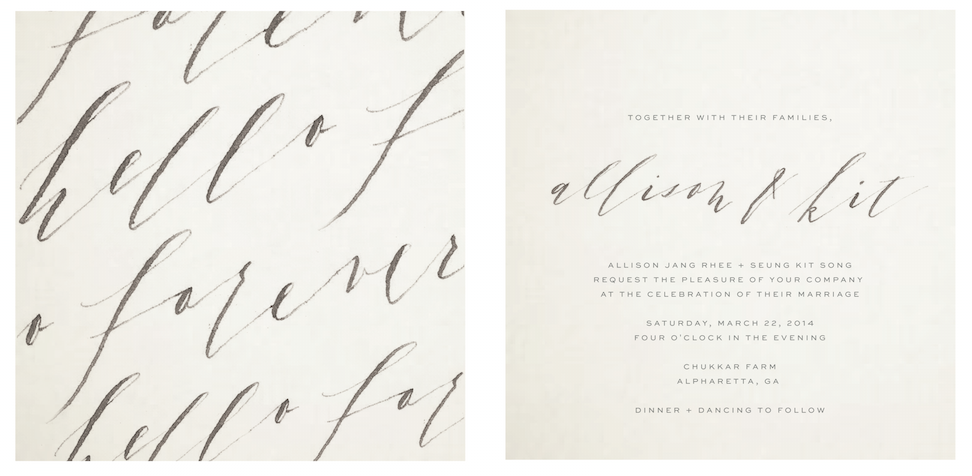 forever
hello f
o forever
hello for
TOGETHER WITH THEIR FAMILIES,
allison & kit
ALLISON JANG RHEE + SEUNG KIT SONG
REQUEST THE PLEASURE OF YOUR COMPANY
AT THE CELEBRATION OF THEIR MARRIAGE
SATURDAY, MARCH 22, 2014
FOUR O'CLOCK IN THE EVENING
CHUKKAR FARM
ALPHARETTA, GA
DINNER + DANCING TO FOLLOW